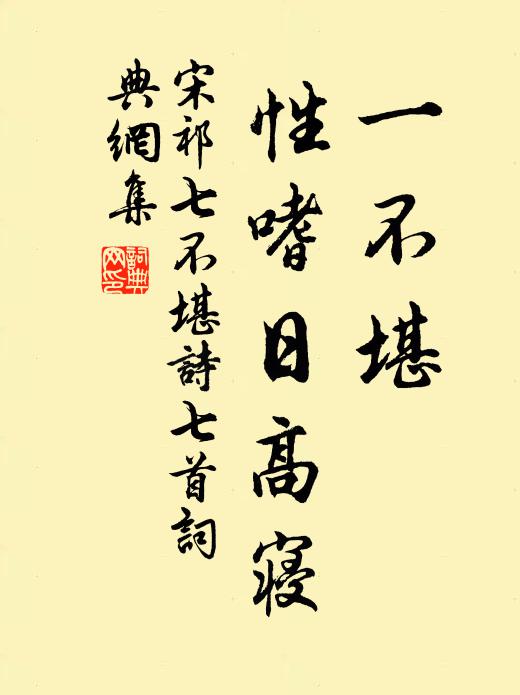 一不堪
性嗜日高寢
宋祁七不堪詩七首詞
典網集
詞典网印